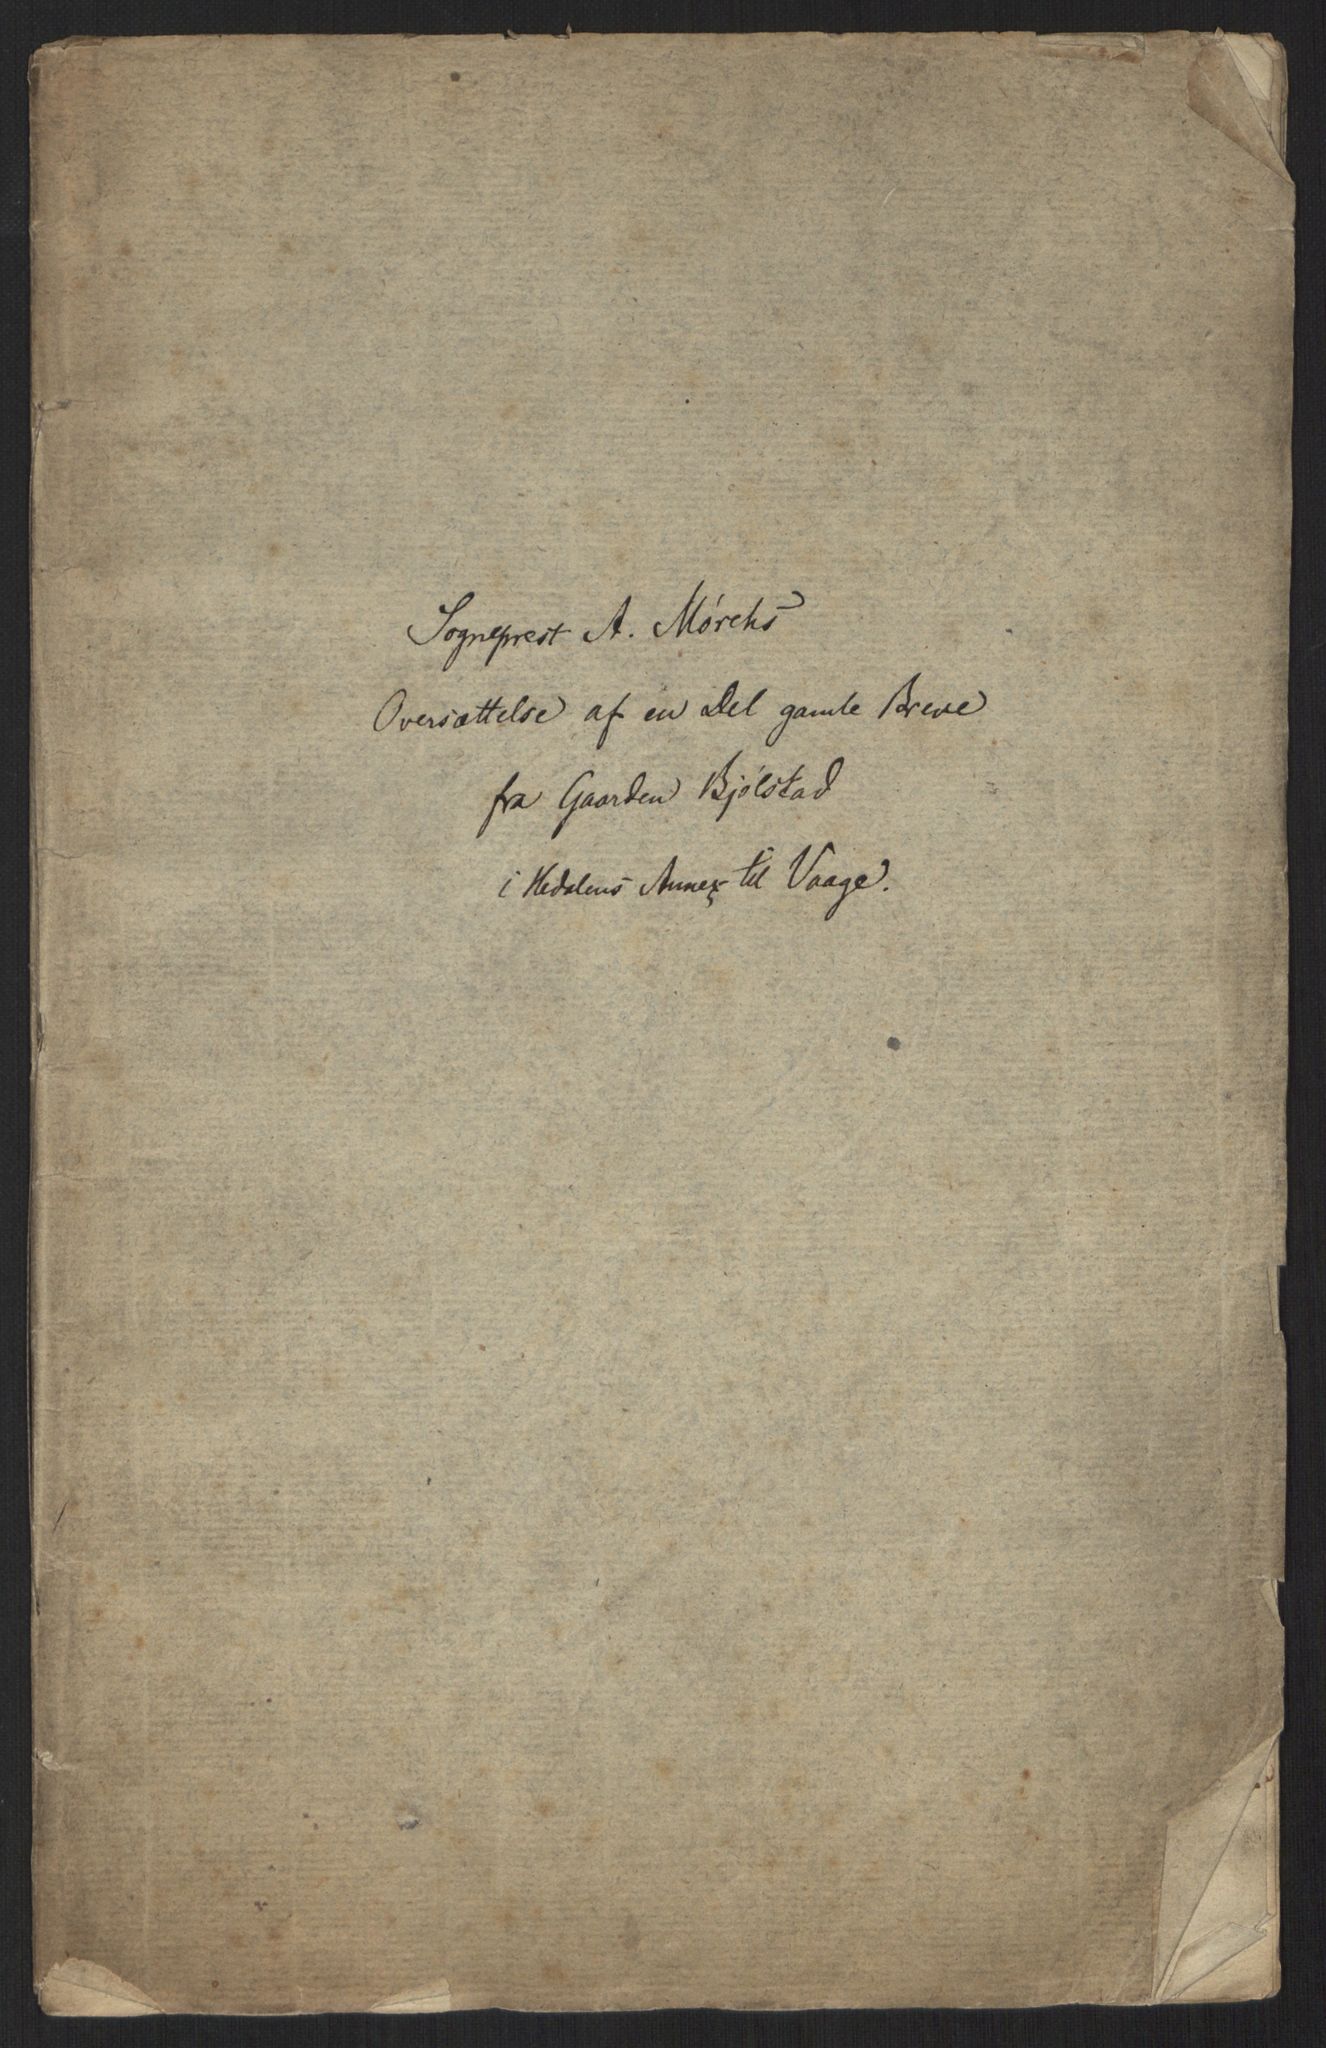 Sogneprest A. Mørchs
Oversættelse af en Del gamle Breve
fra Gaarden Bjölstad
i Hedalens Annex til Vaage.